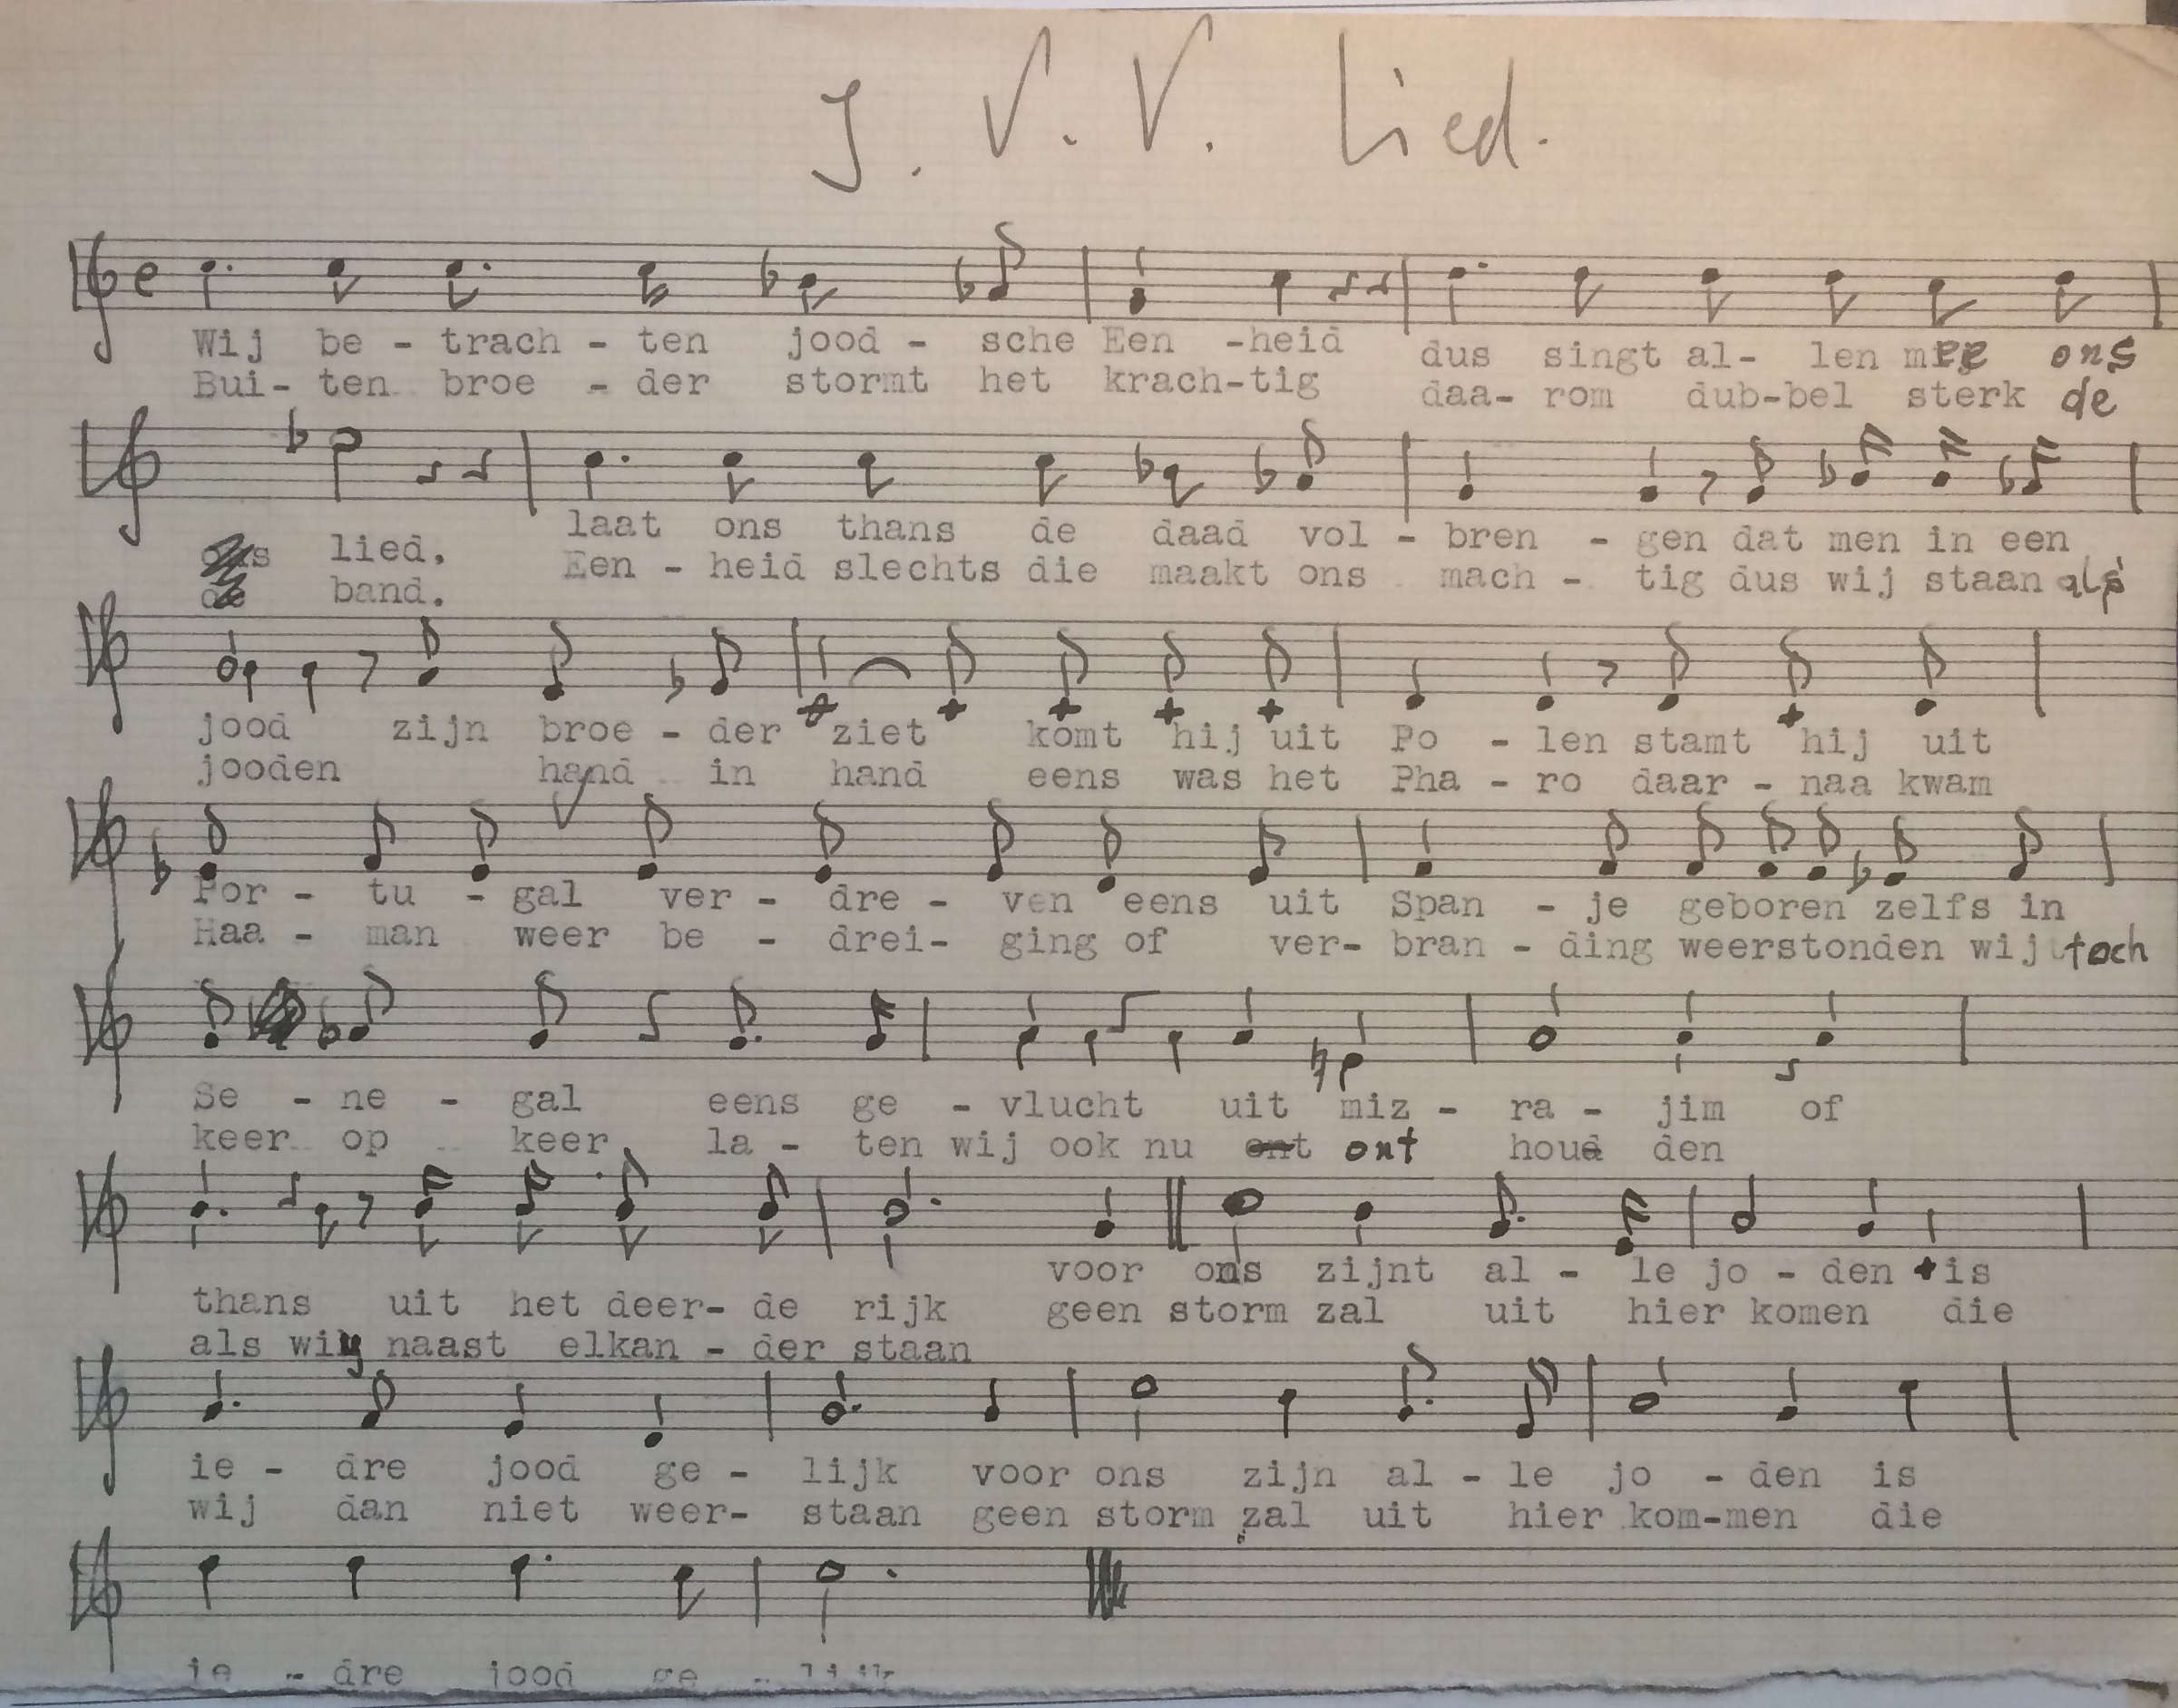 J. V. V. Lied.
Wij be - trach - ten jood - sche Een -heid dus singt al- len mee ons
Bui- ten broe - der stormt het krach-tig daa- rom dub-bel sterk de
lied. laat ons thans de daad vol - bren - gen dat men in een
band. Een - heid slechts die maakt ons mach - tig dus wij staan als
jood zijn broe - der ziet komt hij uit Po - len stamt hij uit
jooden hand in hand eens was het Pha - ro daar - naa kwam
Por - tu - gal ver - dre - ven eens uit Span - je geboren zelfs in
Haa - man weer be - drei- ging of ver- bran - ding weerstonden wij toch
Se - ne - gal eens ge - vlucht uit miz - ra - jim of
keer op keer la - ten wij ook nu ont houd den
voor ons zijnt al - le jo - den is
thans uit het deer- de rijk geen storm zal uit hier komen die
als wij naast elkan - der staan
ie - dre jood ge - lijk voor ons zijn al - le jo - den is
wij dan niet weer- staan geen storm zal uit hier kom-men die
ie - dre jood ge - lijk